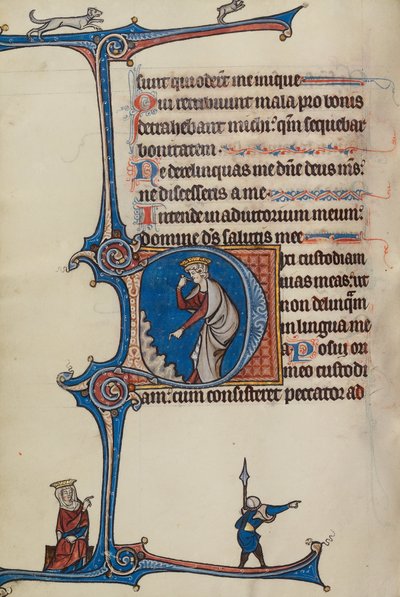 sunt qui oder̄t me inique
Qui retribuunt mala pro bonis
detrahebant michi: qm̄ sequebar
bonitatem.
Ne derelinquas me dn̄e deus ms̄:
ne discesseris a me
Intende in adiutorium meum:
domine ds̄ salutis mee
Dixi custodiam
uias meas: ut
non delinqm̄
in lingua me
a Posui ori
meo custodi
am: cum consisteret peccator ad